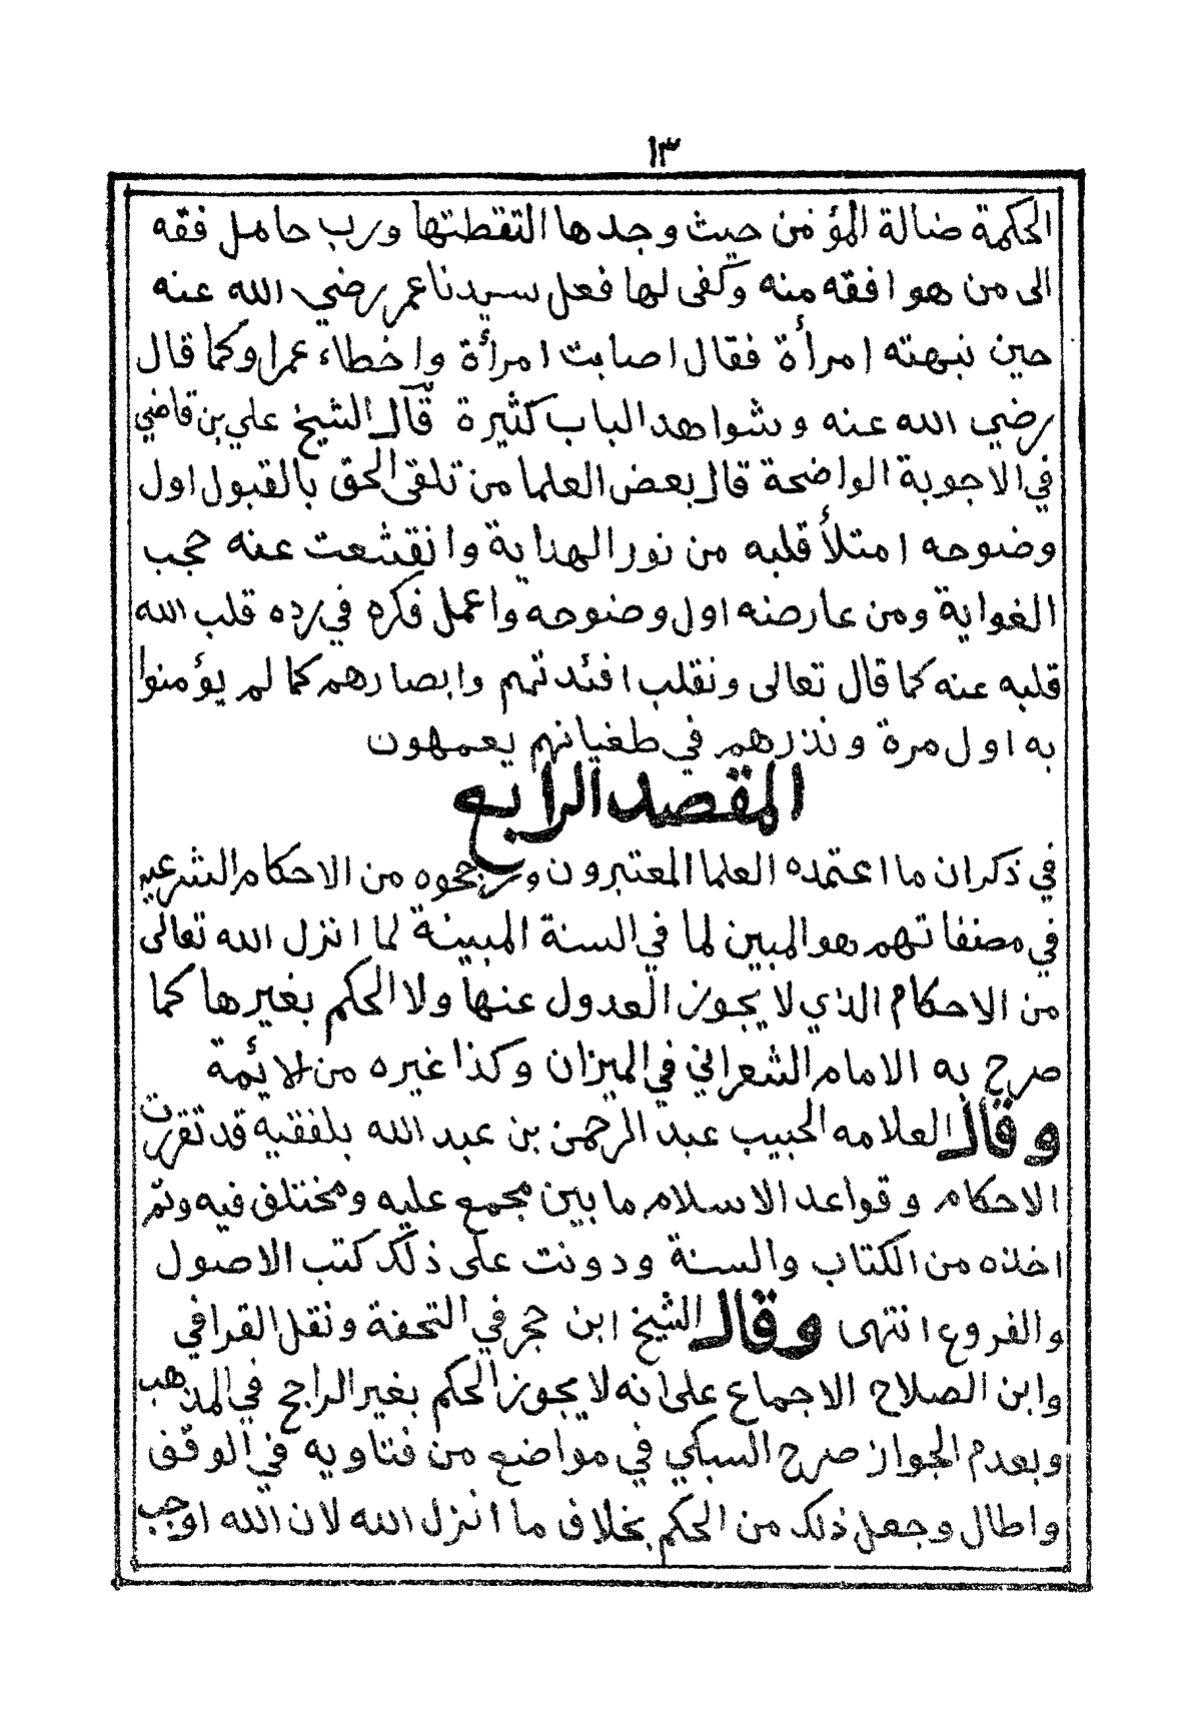 ١٣
الحكمة ضالة المؤمن حيث وجدها التقطتها ورب حامل فقه
الى من هو افقه منه وكفى لها فعل سيدنا عمر رضي الله عنه
حين نبهته امرأة فقال اصابت امرأة واخطاء عمر او كما قال
رضي الله عنه وشواهد الباب كثيرة قال الشيخ علي بن قاضي
في الاجوبة الواضحة قال بعض العلما من تلقى الحق بالقبول اول
وضوحه امتلأ قلبه من نور الهداية وانقشعت عنه حجب
الغواية ومن عارضه اول وضوحه واعمل فكره في رده قلب الله
قلبه عنه كما قال تعالى ونقلب افئدتهم وابصارهم كما لم يؤمنوا
به اول مرة ونذرهم في طغيانهم يعمهون
المقصد الرابع
في ذكر ان ما اعتمده العلما المعتبرون ورجحوه من الاحكام الشرعيه
في مصنفاتهم هو المبين لما في السنة المبينة لما انزل الله تعالى
من الاحكام الذي لا يجوز العدول عنها ولا الحكم بغيرها كما
صرح به الامام الشعراني في الميزان وكذا غيره من الائمة
وقال العلامه الحبيب عبد الرحمن بن عبد الله بلفقيه قد تقررت
الاحكام وقواعد الاسلام ما بين مجمع عليه ومختلف فيه وتم
اخذه من الكتاب والسنة ودونت على ذلك كتب الاصول
والفروع انتهى وقال الشيخ ابن حجر في التحفة ونقل القرافي
وابن الصلاح الاجماع على انه لا يجوز الحكم بغير الراجح في المذهب
وبعدم الجواز صرح السبكي في مواضع من فتاويه في الوقف
واطال وجعل ذلك من الحكم بخلاف ما انزل الله لان الله اوجب